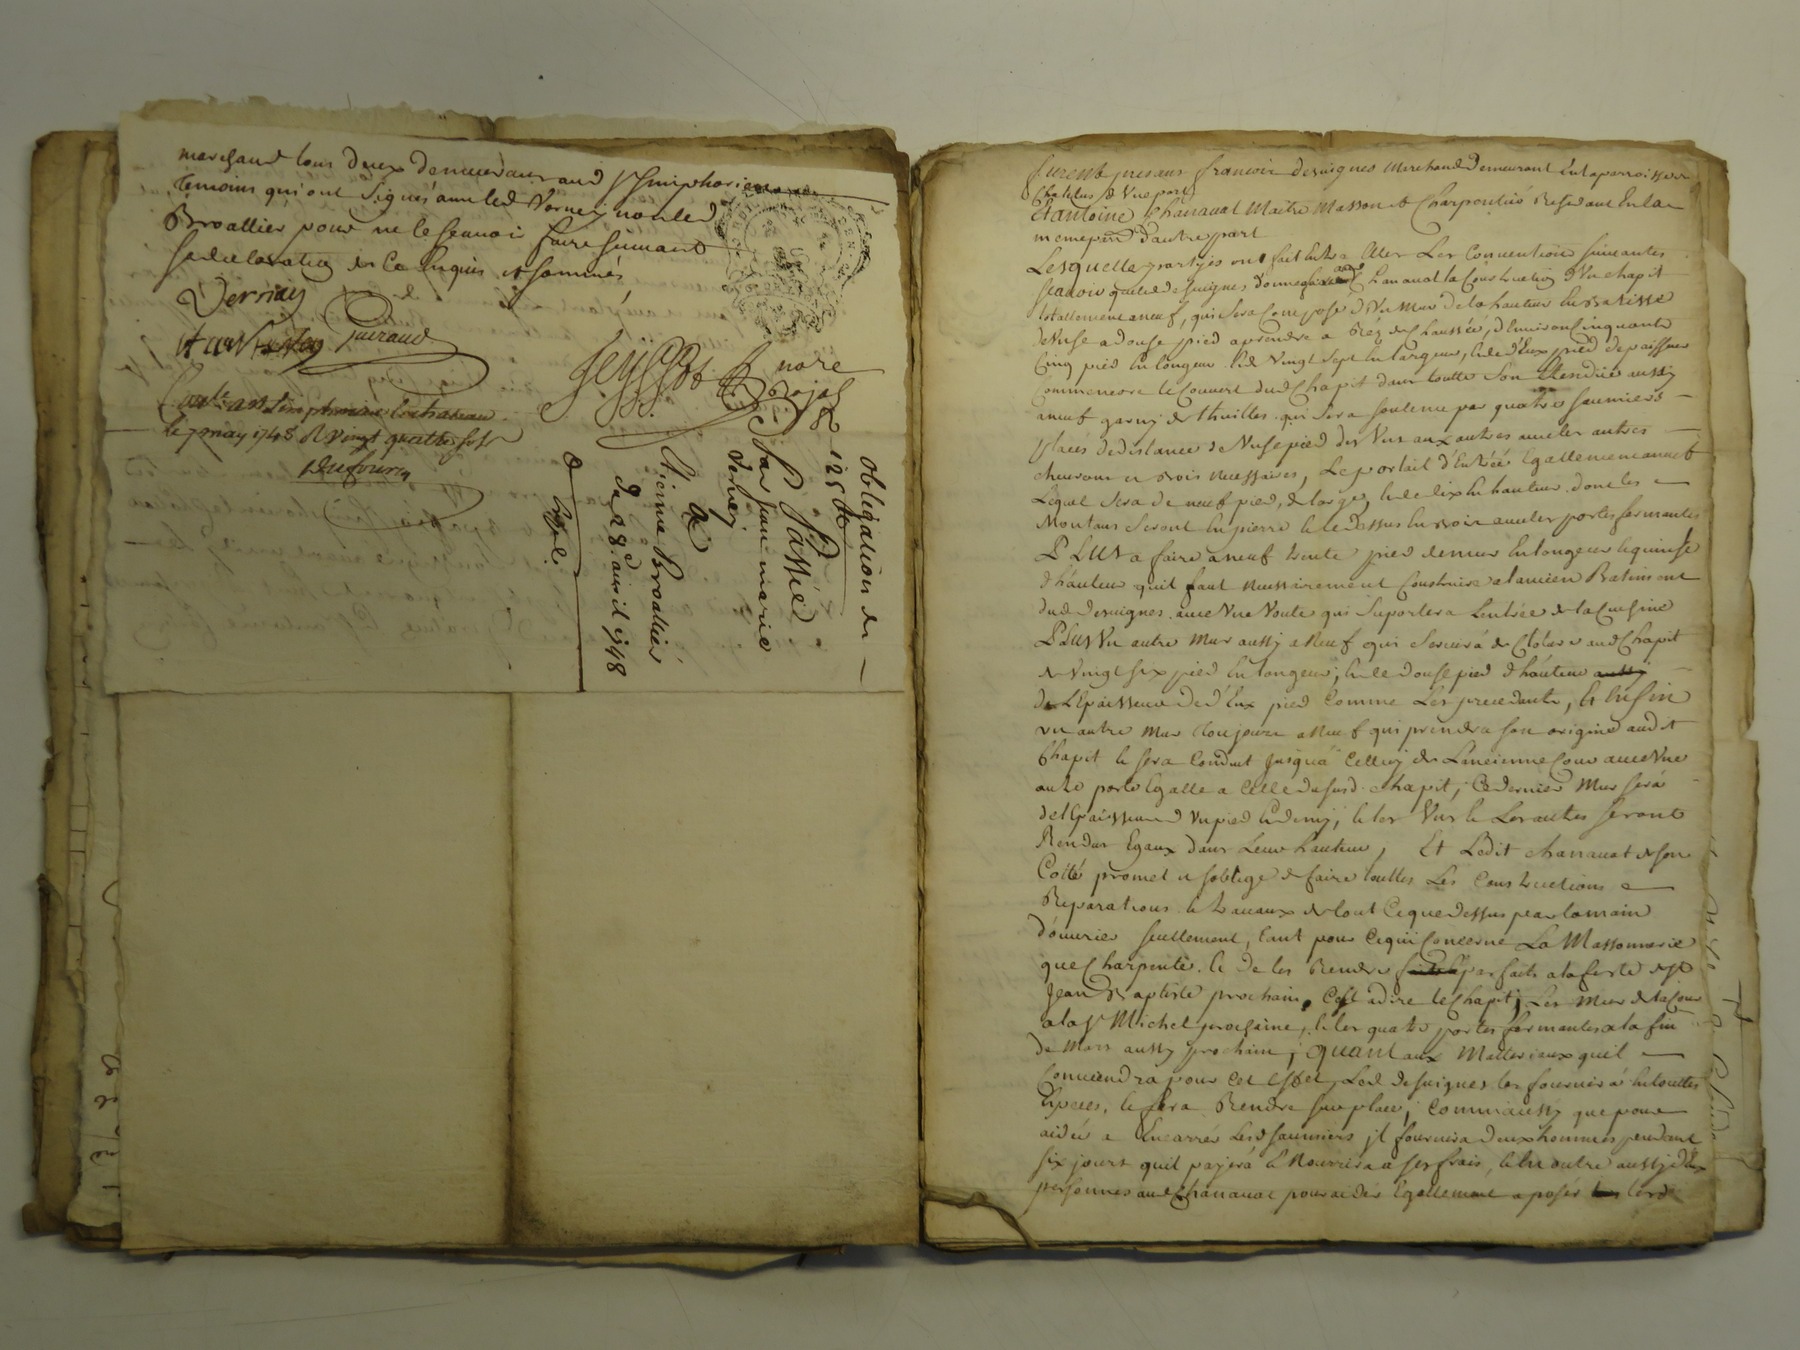 marchand tous deux demeurans aud St Simphorien
temoins qui ont signés avec led Verney non led
Broallier pour ne le scavoir faire suivant
sa declaration de ce enquis et sommés
Verney
Guiraud
Seyssot
nore
Royal
Con.le a St simphorien le chateau
le 7 may 1748 R vingt quatre sols
Dufour
obligation de
125 tt
Passée
Par jean marie
Verney
a
Etienne Broallier
du 8e avril 1748
furent presans francois desvignes Marchand Demeurant en la parroisse de
Chatelus d Une part
Et antoine Chanavat Maitre Masson et Charpentié Residant En la
meme par. d'autre part
Lesquelles partyes ont fait Entre Elles Les Conventions suivantes
scavoir que led desvignes donne aud Chanavat la Construction d'Un chapit
totallement aneuf, qui sera Composé d'Un Mur de la hauteur
de Unse a douse pied aprendre a Rez de Chaussée, d'Environ Cinquante
Cinq pied En longeur Et de Vingt sept En largeur, Et de d'Eux pied depaisseur
Comme encore le Couvert dud Chapit dans toutte son Etendüe aussy
aneuf garny de thuilles qui sera soutenu par quatre saumiers
placés de distance de Unse pied des Uns aux autres avec les autres
chevrons et bois necessaires, Le portail d'Entrée Egallement aneuf
Lequel sera de neuf pied, de large, Et de dix En hauteur dont les
Montans seront En pierre Et le dessus En bois avec les portes fermantes
PLUS a faire aneuf trente pied de mur En longeur Et quinse
d'hauteur quil faut necessairement Construire a lancien Batiment
dud Desvignes avec Une Voute qui suportera lentrée de la Cuisine
PLUS Un autre Mur aussy aNeuf qui servira de Cloture aud Chapit
de Vingt six pied En longeur, Et de douse pied d'hauteur
de LEpaisseur de d'Eux pied Comme Les precedants, Et Enfin
un autre Mur toujours aNeuf qui prendra son origine audit
Chapit Et sera Conduit jusqua Celluy de Lancienne Cour avec Une
autre porte Egalle a Celle du susd. chapit; Ce dernier Mur sera
de lEpaisseur d'un pied Et demy, Et les Uns Et Les autres seront
Rendus Egaux dans Leur hauteur, Et Ledit chanavat de son
Coité promet et soblige de faire touttes Les Constructions
Reparations Et travaux de tout Ce que dessus par la main
d'ouvrier seullement, tant pour Ce qui Concerne La Massonnerie
que Charpente. Et de les Rendre parfaits a la feste de St
Jean Baptiste prochain, C'est adire le Chapit; Les Mur de la Cour
a la St Michel prochaine, Et les quatre portes fermantes a la fin
de Mars aussy prochain; QUANT aux Materiaux quil
Conviendra pour Cet effet, Led desvignes les fournira En touttes
Especes, Et fera Rendre sur place; Comm aussy que pour
aider a Encarrer Lesd saumiers jl fournira deux hommes pendant
six jours quil payera Et Nourrira a ses frais, Et En outre aussy deux
personnes aud Chanavat pour aider Egallement a poser lesd